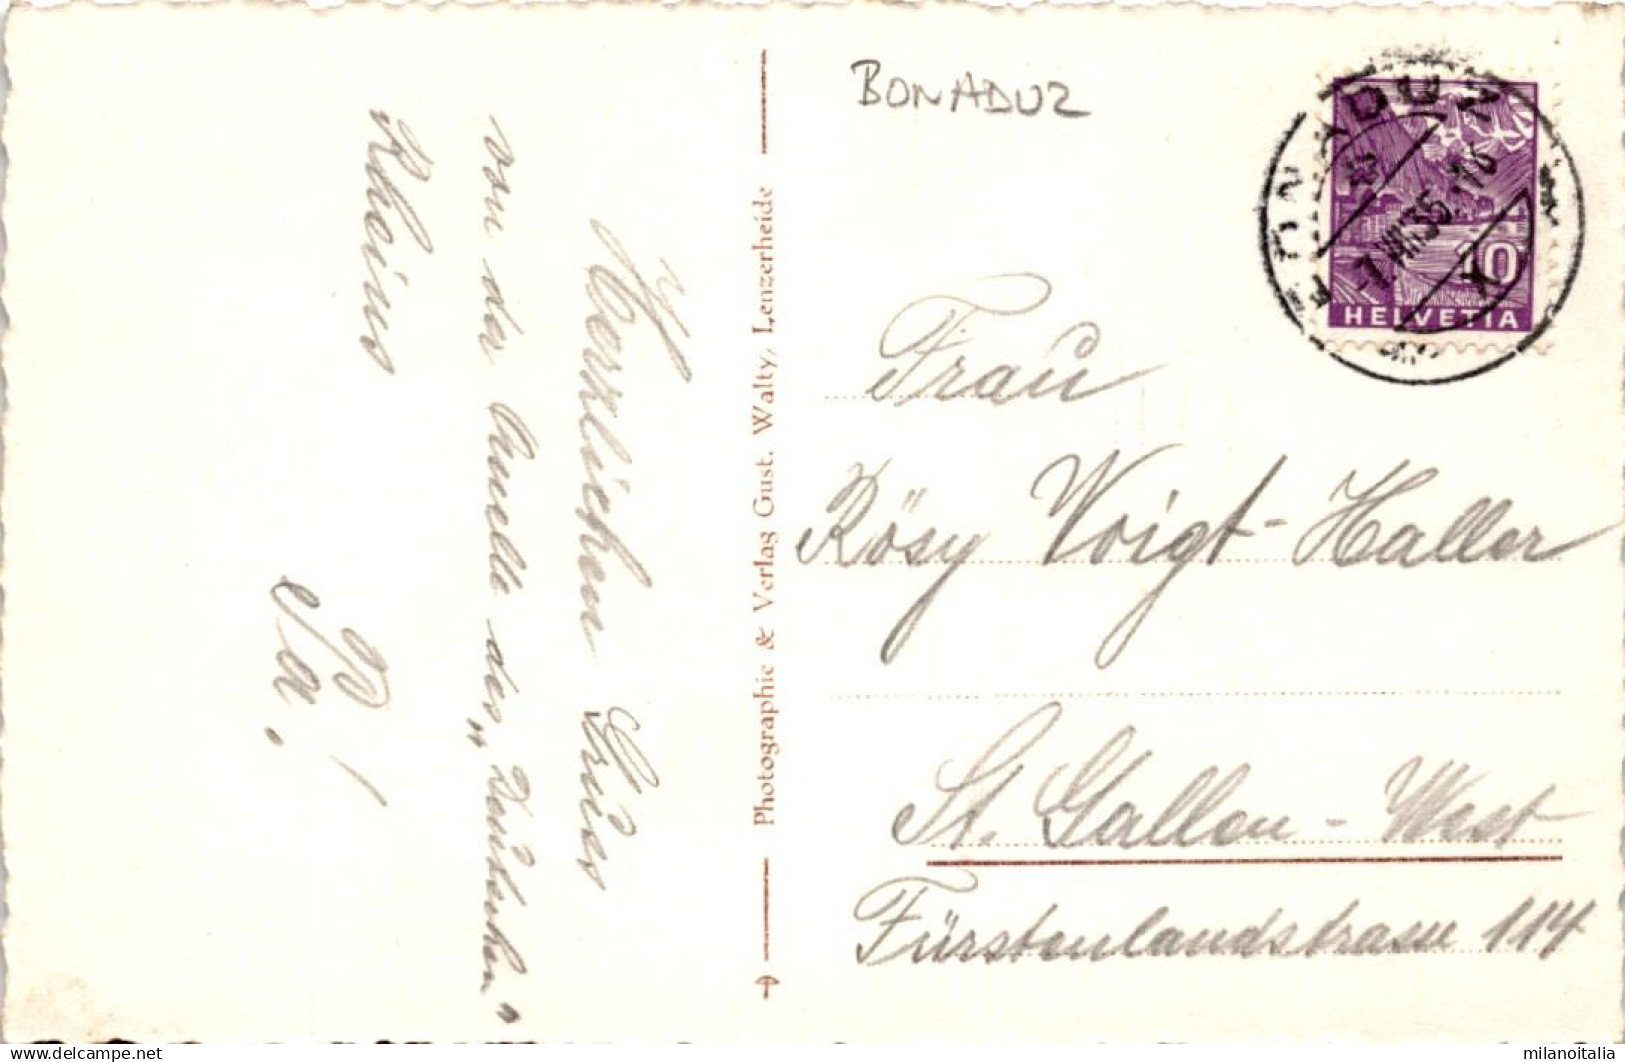 Herzlichen Gruss
von der Quelle des „Deutschen"
Rheins
Pa!
Photographie & Verlag Gust. Walty, Lenzerheide
BONADUZ
BONADUZ
-7.VIII35.-16
10
HELVETIA
Frau
Rösy Voigt-Haller
St. Gallen-West
Fürstenlandstrasse 114
milanoitalia